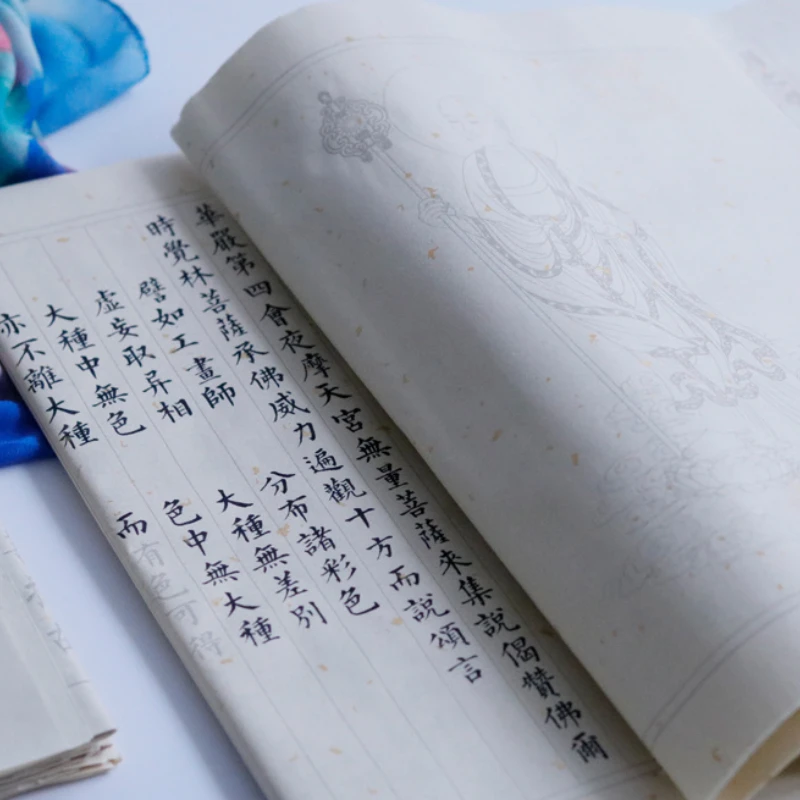 華嚴第四會夜摩天宮無量菩薩來集說偈贊佛爾
時覺林菩薩承佛威力遍觀十方而說頌言
譬如工畫師 分布諸彩色
虛妄取异相 大種無差別
大種中無色 色中無大種
亦不離大種 而有色可得